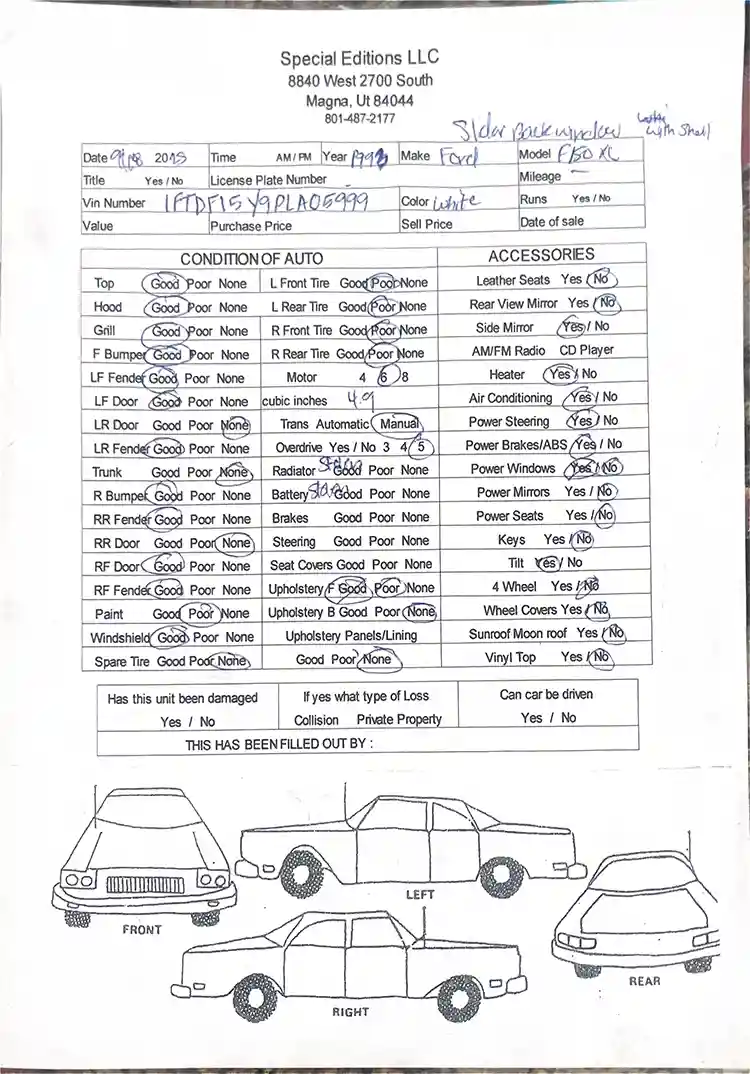 Special Editions LLC
8840 West 2700 South
Magna, Ut 84044
801-487-2177
Slder Back window
with Shell
Date 2015 Time AM / PM Year 1993 Make Ford Model F150 XL
Title Yes / No License Plate Number Mileage —
Vin Number 1FTDF15Y9PLA05999 Color white Runs Yes / No
Value Purchase Price Sell Price Date of sale
CONDITION OF AUTO ACCESSORIES
Top Good Poor None L Front Tire Good Poor None Leather Seats Yes / No
Hood Good Poor None L Rear Tire Good Poor None Rear View Mirror Yes / No
Grill Good Poor None R Front Tire Good Poor None Side Mirror Yes / No
F Bumper Good Poor None R Rear Tire Good Poor None AM/FM Radio CD Player
LF Fender Good Poor None Motor 4 6 8 Heater Yes / No
LF Door Good Poor None cubic inches 4.9 Air Conditioning Yes / No
LR Door Good Poor None Trans Automatic Manual Power Steering Yes / No
LR Fender Good Poor None Overdrive Yes / No 3 4 5 Power Brakes/ABS Yes / No
Trunk Good Poor None Radiator Good Poor None Power Windows Yes / No
R Bumper Good Poor None Battery Good Poor None Power Mirrors Yes / No
RR Fender Good Poor None Brakes Good Poor None Power Seats Yes / No
RR Door Good Poor None Steering Good Poor None Keys Yes / No
RF Door Good Poor None Seat Covers Good Poor None Tilt Yes / No
RF Fender Good Poor None Upholstery F Good Poor None 4 Wheel Yes / No
Paint Good Poor None Upholstery B Good Poor None Wheel Covers Yes / No
Windshield Good Poor None Upholstery Panels/Lining Sunroof Moon roof Yes / No
Spare Tire Good Poor None Good Poor None Vinyl Top Yes / No
Has this unit been damaged If yes what type of Loss Can car be driven
Yes / No Collision Private Property Yes / No
THIS HAS BEEN FILLED OUT BY :
LEFT
FRONT
REAR
RIGHT